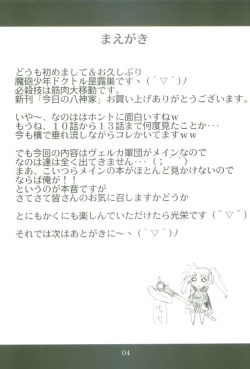 まえがき
どうも初めまして＆お久しぶり
魔砲少年ドクトル是露巣です ヽ（´▽｀）ノ
必殺技は筋肉大移動です。
新刊「今日の八神家」お買い上げありがとうございます。
いや〜、なのははホントに面白いすねｗ
もうね、１０話から１３話まで何度見たことか･･･
今も横で垂れ流しながらコレかいてますｗ
でも今回の内容はヴェルカ軍団がメインなので
なのは達は全く出てきません･･･(；´⌒｀)
まあ、こいつらメインの本がほとんど見かけないので
ならば俺が！！
というのが本音です
さてさて皆さんのお気に召しますかどうか
とにもかくにも楽しんでいただけたら光栄です（´▽｀）
それでは次はあとがきに〜ヽ（´▽｀）ノ
04